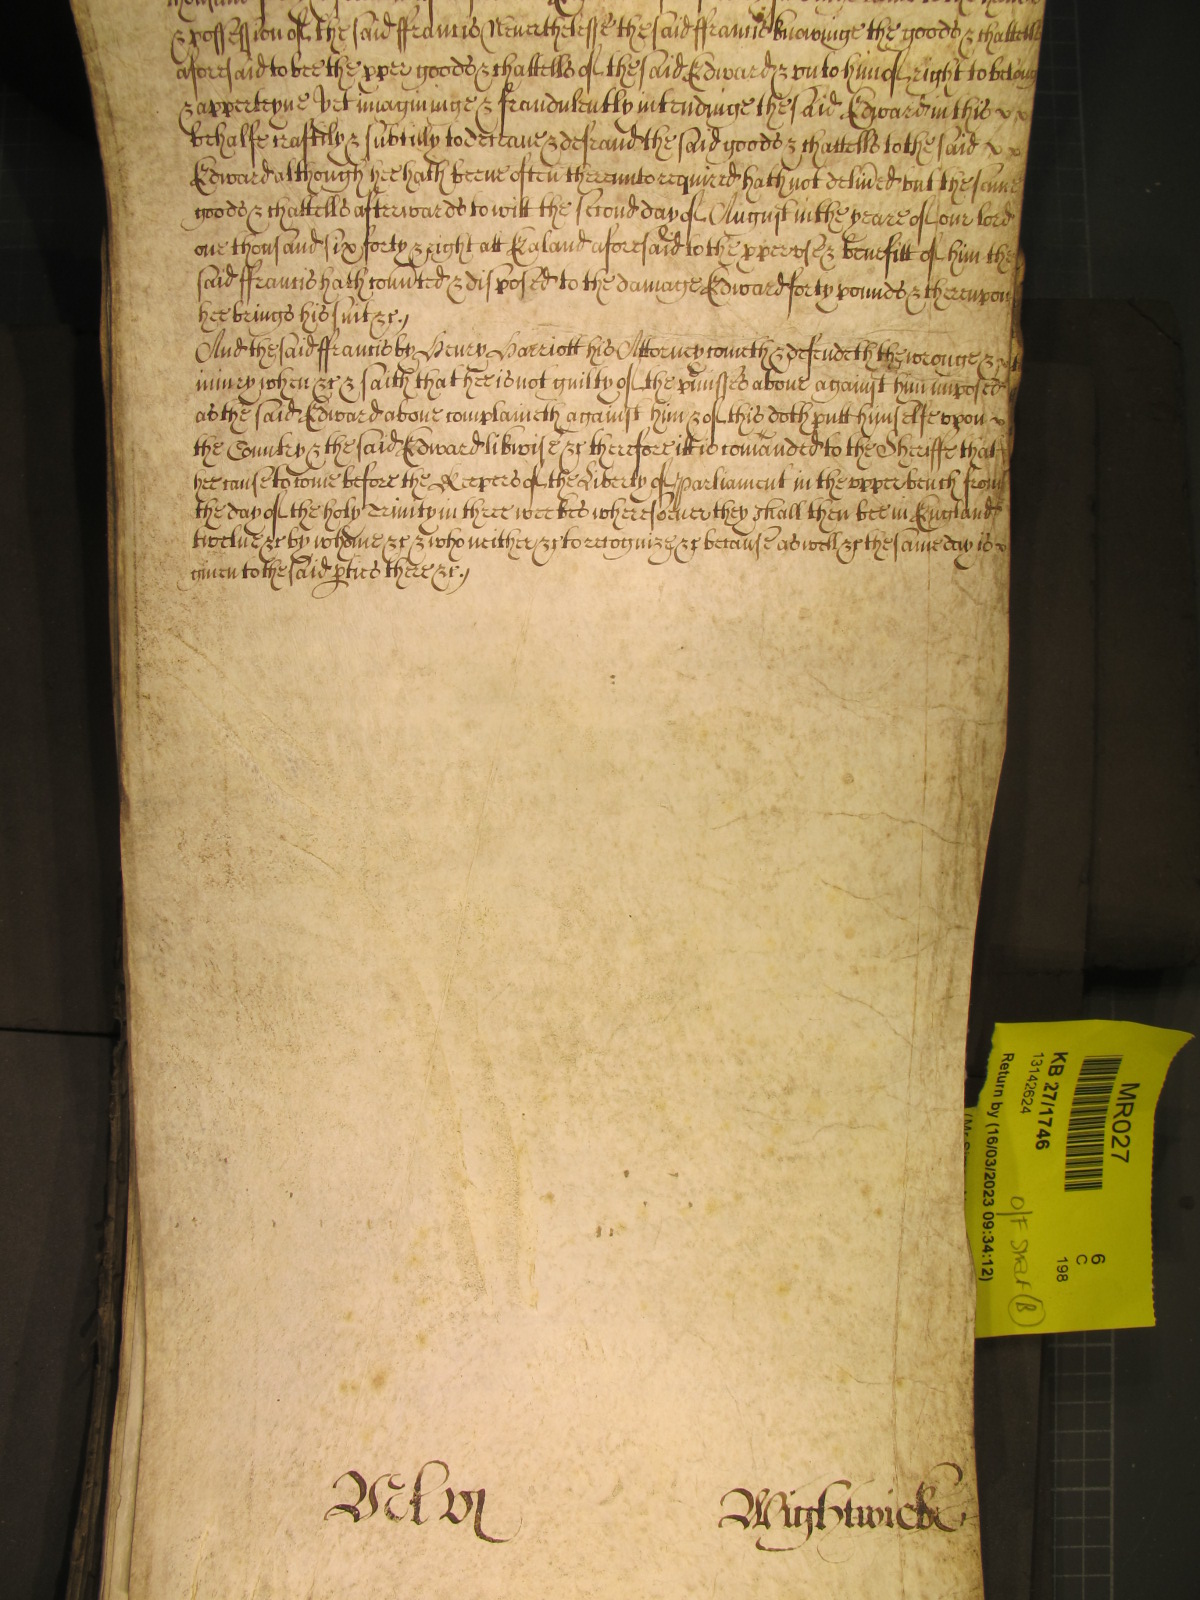 & possession of the said ffrancis Neverthelesse the said ffrancis knowinge the goods & chattells
aforesaid to bee the pper goods & chattells of the said Edward & unto him of right to belong
& apperteyne Yet imagininge & fraudulently intendinge the said Edward in this
behalfe craftily & subtilly to deceave & defraud the said goods & chattells to the said
Edward although hee hath beene often thereunto required hath not delived but the same
goods & chattells afterwards to witt the second day of August in the yeare of our lord
one thousand six forty & eight att Ealand aforesaid to the pper use & benefitt of him the
said ffrancis hath convted & disposed to the damage Edward forty pounds & thereupon
hee brings his suit &c
And the said ffrancis by Henry Harriott his Attorney cometh & defendeth the wronge &
iniury when &c & saith that hee is not guilty of the pmisses above against him imposed
as the said Edward above complaineth against him & of this doth putt himselfe upon
the Country & the said Edward likwise &c therefore it is comanded to the Sheriffe that
hee cause to come before the Keepers of the Liberty of Parliament in the upper bench from
the day of the holy Trinity in three weekes wheresoever they shall then bee in England
twelve &c by whome &c & who neither &c to recognize &c because aswell &c the same day is
given to the said pties there &c
Wightwicke
MR027
6
C
198
KB 27/1746
13142624
Return by (16/03/2023 09:34:12)
O/F
(B)